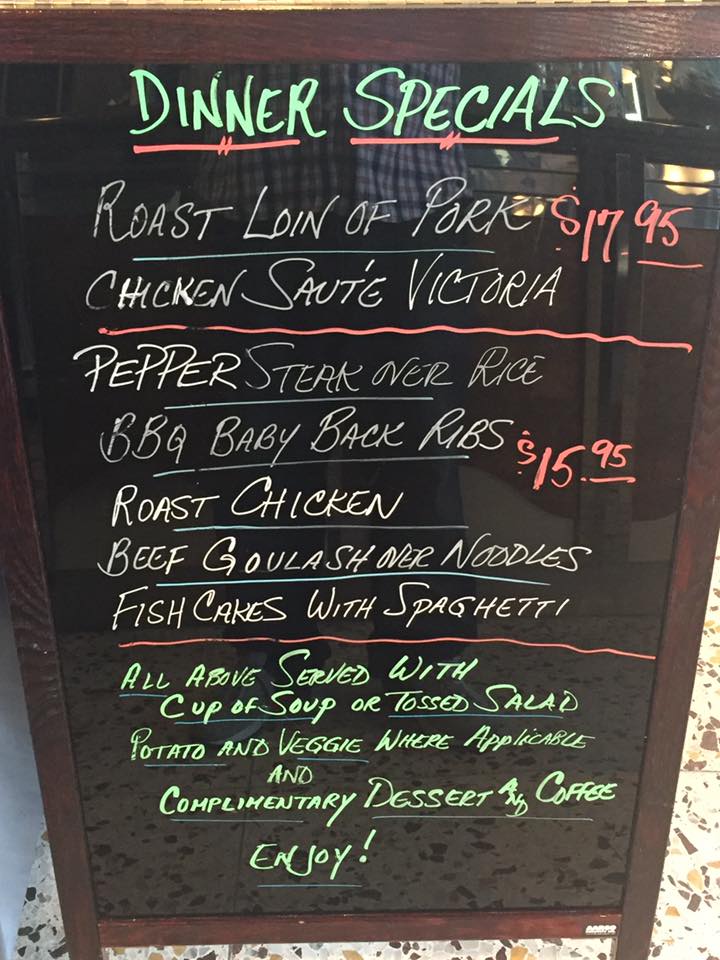 DINNER SPECIALS
ROAST LOIN OF PORK $17 95
CHICKEN SAUTÉ VICTORIA
PEPPER STEAK OVER RICE
BBQ BABY BACK RIBS $15.95
ROAST CHICKEN
BEEF GOULASH OVER NOODLES
FISH CAKES WITH SPAGHETTI
ALL ABOVE SERVED WITH
CUP OF SOUP OR TOSSED SALAD
POTATO AND VEGGIE WHERE APPLICABLE
AND
COMPLIMENTARY DESSERT AND COFFEE
ENJOY!